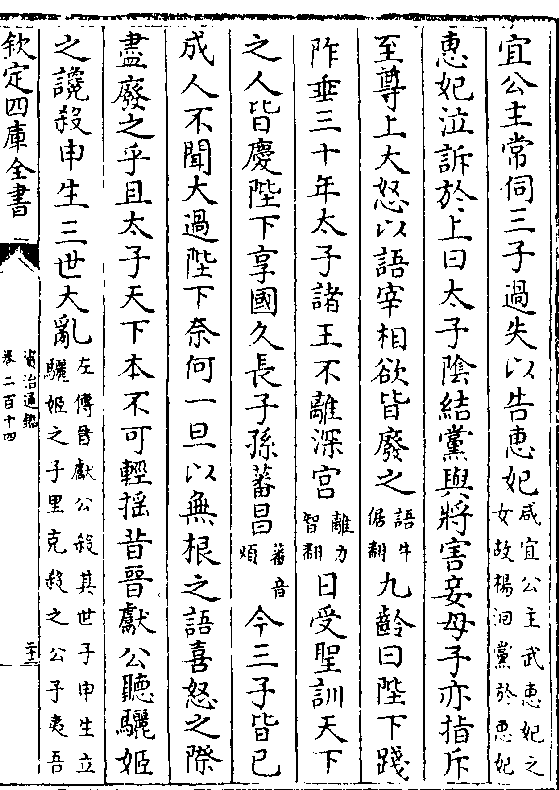 宜公主常伺三子過失以告惠妃咸宜公主武惠妃之女故楊洄黨於惠妃
惠妃泣訴於上曰太子陰結黨與將害妾母子亦指斥
至尊上大怒以語宰相欲皆廢之語牛倨翻九齡曰陛下踐
阼垂三十年太子諸王不離深宫離力智翻日受聖訓天下
之人皆慶陛下享國久長子孫蕃昌蕃音煩今三子皆已
成人不聞大過陛下奈何一旦以無根之語喜怒之際
盡廢之乎且太子天下本不可輕揺昔晉獻公聽驪姬
之讒殺申生三世大亂左傳晉獻公殺其世子申生立驪姬之子里克殺之公子夷吾
欽定四庫全書
資治通鑑
卷二百十四
二十三